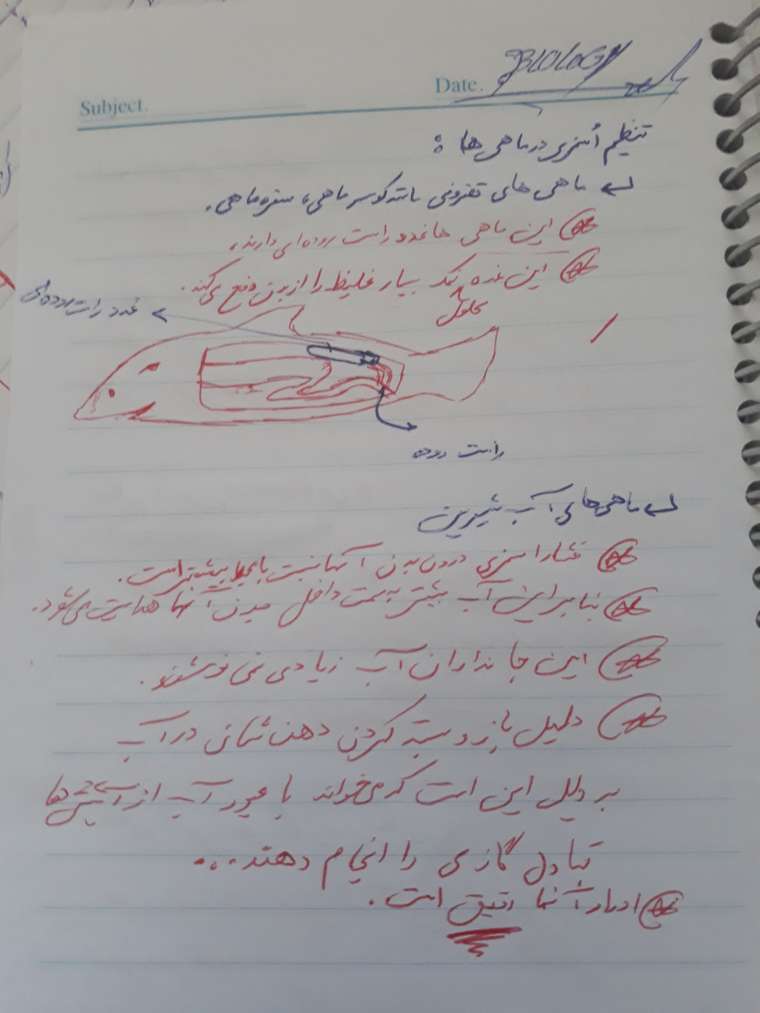 Subject.
Date. BIOLOGY
تنظیم اسمزی در ماهی ها :
ماهی های غضروفی مانند کوسه ماهی، سفره ماهی.
این ماهی ها غدد راست روده ای دارند.
این غده نمک بسیار غلیظ را از بدن دفع می کند.
محلول
غدد راست روده ای
راست روده
ماهی های آب شیرین
فشار اسمزی درون بدن آنها نسبت با محیط بیشتر است.
بنابراین آب بیشتر به سمت داخل بدن آنها هدایت می شود.
این جانداران آب زیادی نمی نوشند.
دلیل باز و بسته کردن دهن شان در آب
به دلیل این است که می خواند با عبور آب از آبشش ها
تبادل گازی را انجام دهند...
ادرار آنها رقیق است.